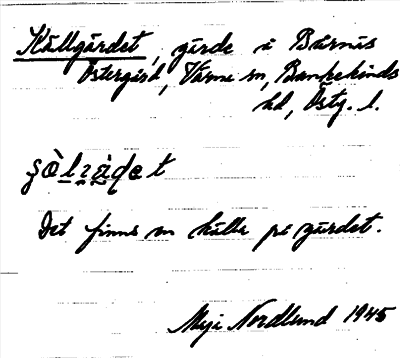 Källgärdet, gärde i Bärnäs
Östergård, Värna sn, Bankekinds
hd, Östg. l.
Det finns en källa på gärdet.
Maja Nordlund 1945